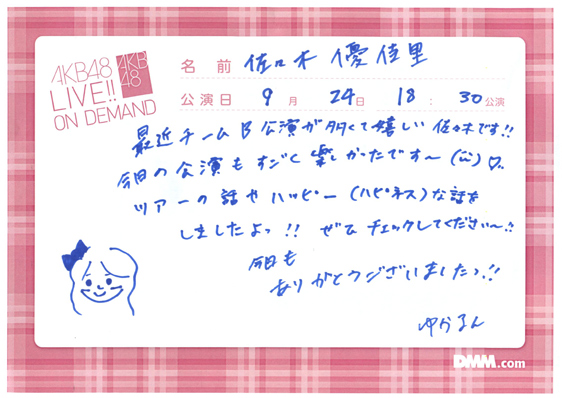 AKB48
LIVE!!
ON DEMAND
AKB
48
名前 佐々木 優佳里
公演日 9月 24日 18:30公演
最近チームB公演が多くて嬉しい佐々木です!!
今日の公演もすごく楽しかったです〜(ü)♡.
ツアーの話やハッピー(ハピネス)な話を
しましたよっ!! ぜひチェックしてください〜!!
今日も
ありがとうございましたっ!!
ゆかるん
DMM.com